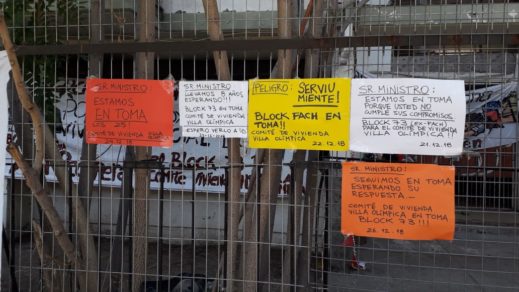 SR MINISTRO:
ESTAMOS
EN TOMA
COMITÉ DE VIVIENDA
SR MINISTRO:
LLEVAMOS 8 AÑOS
ESPERANDO!!!
BLOCK 73 EN TOMA
COMITÉ DE VIVIENDA
VILLA OLÍMPICA
ESPERO VERLO A UD
¡PELIGRO: SERVIU
MIENTE!
BLOCK FACH EN
TOMA!!
COMITÉ DE VIVIENDA
VILLA OLÍMPICA
22.12.18
SR MINISTRO:
ESTAMOS EN TOMA
PORQUE USTED NO
CUMPLE SUS COMPROMISOS
BLOCK 73 (EX-FACH)
PARA EL COMITÉ DE VIVIENDA
VILLA OLÍMPICA
21.12.18
SR MINISTRO:
SEGUIMOS EN TOMA
ESPERANDO SU
RESPUESTA....
COMITÉ DE VIVIENDA
VILLA OLÍMPICA EN TOMA
BLOCK 73!!!
26.12.18
Block